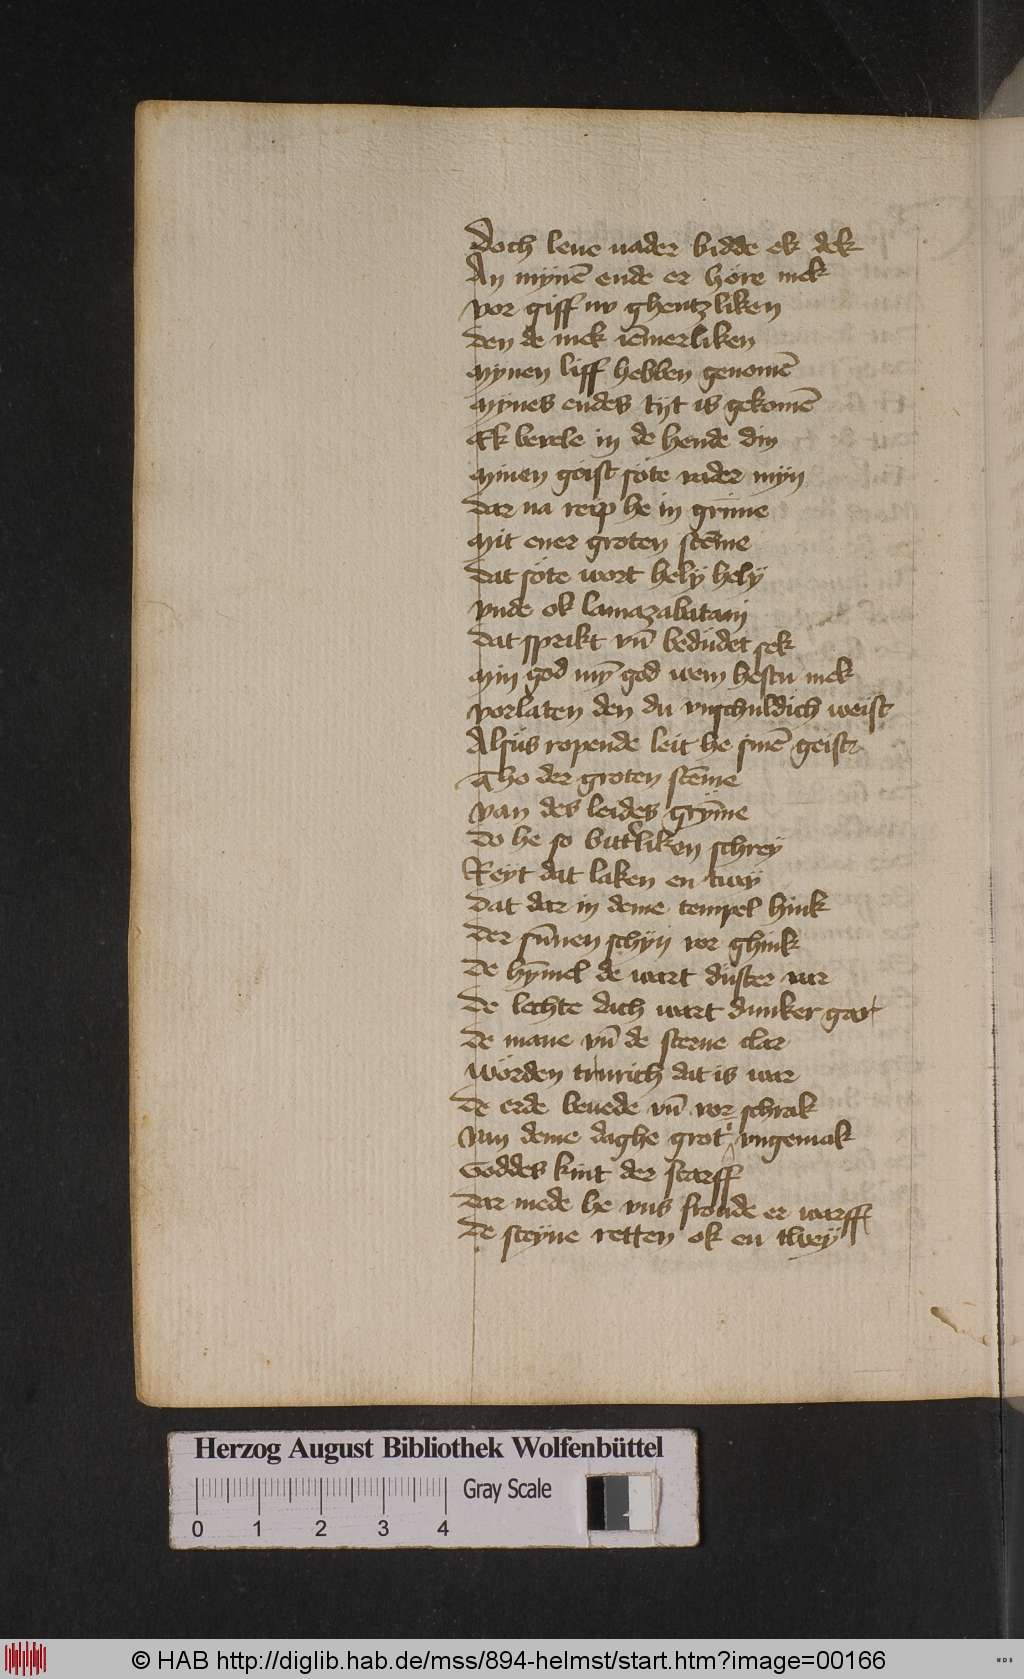 Doch leue uader bidde ek dek
An mynē ende er hore mek
vor giff nv ghentzliken
den de mek iēmerliken
Mynen liff hebben genomē
Mynes endes tijt is gekomē
Ek bevele in de hende din
Minen geist söte vader mijn
dar na reip he in grime
Mit ener groten stēme
dat söte wort helÿ helÿ
vnde ok lamazabatani
dat sprikt vn̄ bedüdet sek
Min god mȳ god wem hestu mek
vorlaten den du vnschuldich weist
Alsüs ropende leit he sinē geist
Tho der groten stēme
van des leides grȳme
do he so bitterliken schrey
Reyt dat laken en twÿ
dat dar in deme tempel hink
der sūnen schÿn vor ghink
de hȳmel de wart düster var
de lechte dach wart dunker gar
de mane vn̄ de sterne clar
wörden trurich dat is war
de erde beuede vn̄ vor schrak
van deme daghe grot vngemak
Goddes kint der starff
dar mede he vns froude er warff
de steyne retten ok en twey
Herzog August Bibliothek Wolfenbüttel
Gray Scale
0 1 2 3 4
© HAB http://diglib.hab.de/mss/894-helmst/start.htm?image=00166